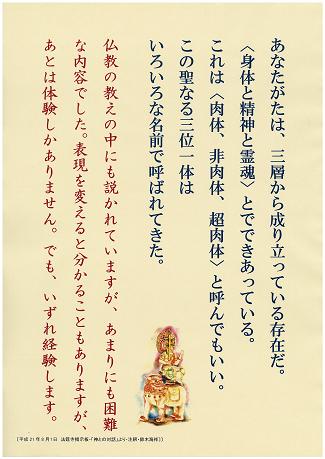 あなたがたは、三層から成り立っている存在だ。
〈身体と精神と霊魂〉とでできあっている。
これは〈肉体、非肉体、超肉体〉と呼んでもいい。
この聖なる三位一体は
いろいろな名前で呼ばれてきた。
仏教の教えの中にも説かれていますが、あまりにも困難
な内容でした。表現を変えると分かることもありますが、
あとは体験しかありません。でも、いずれ経験します。